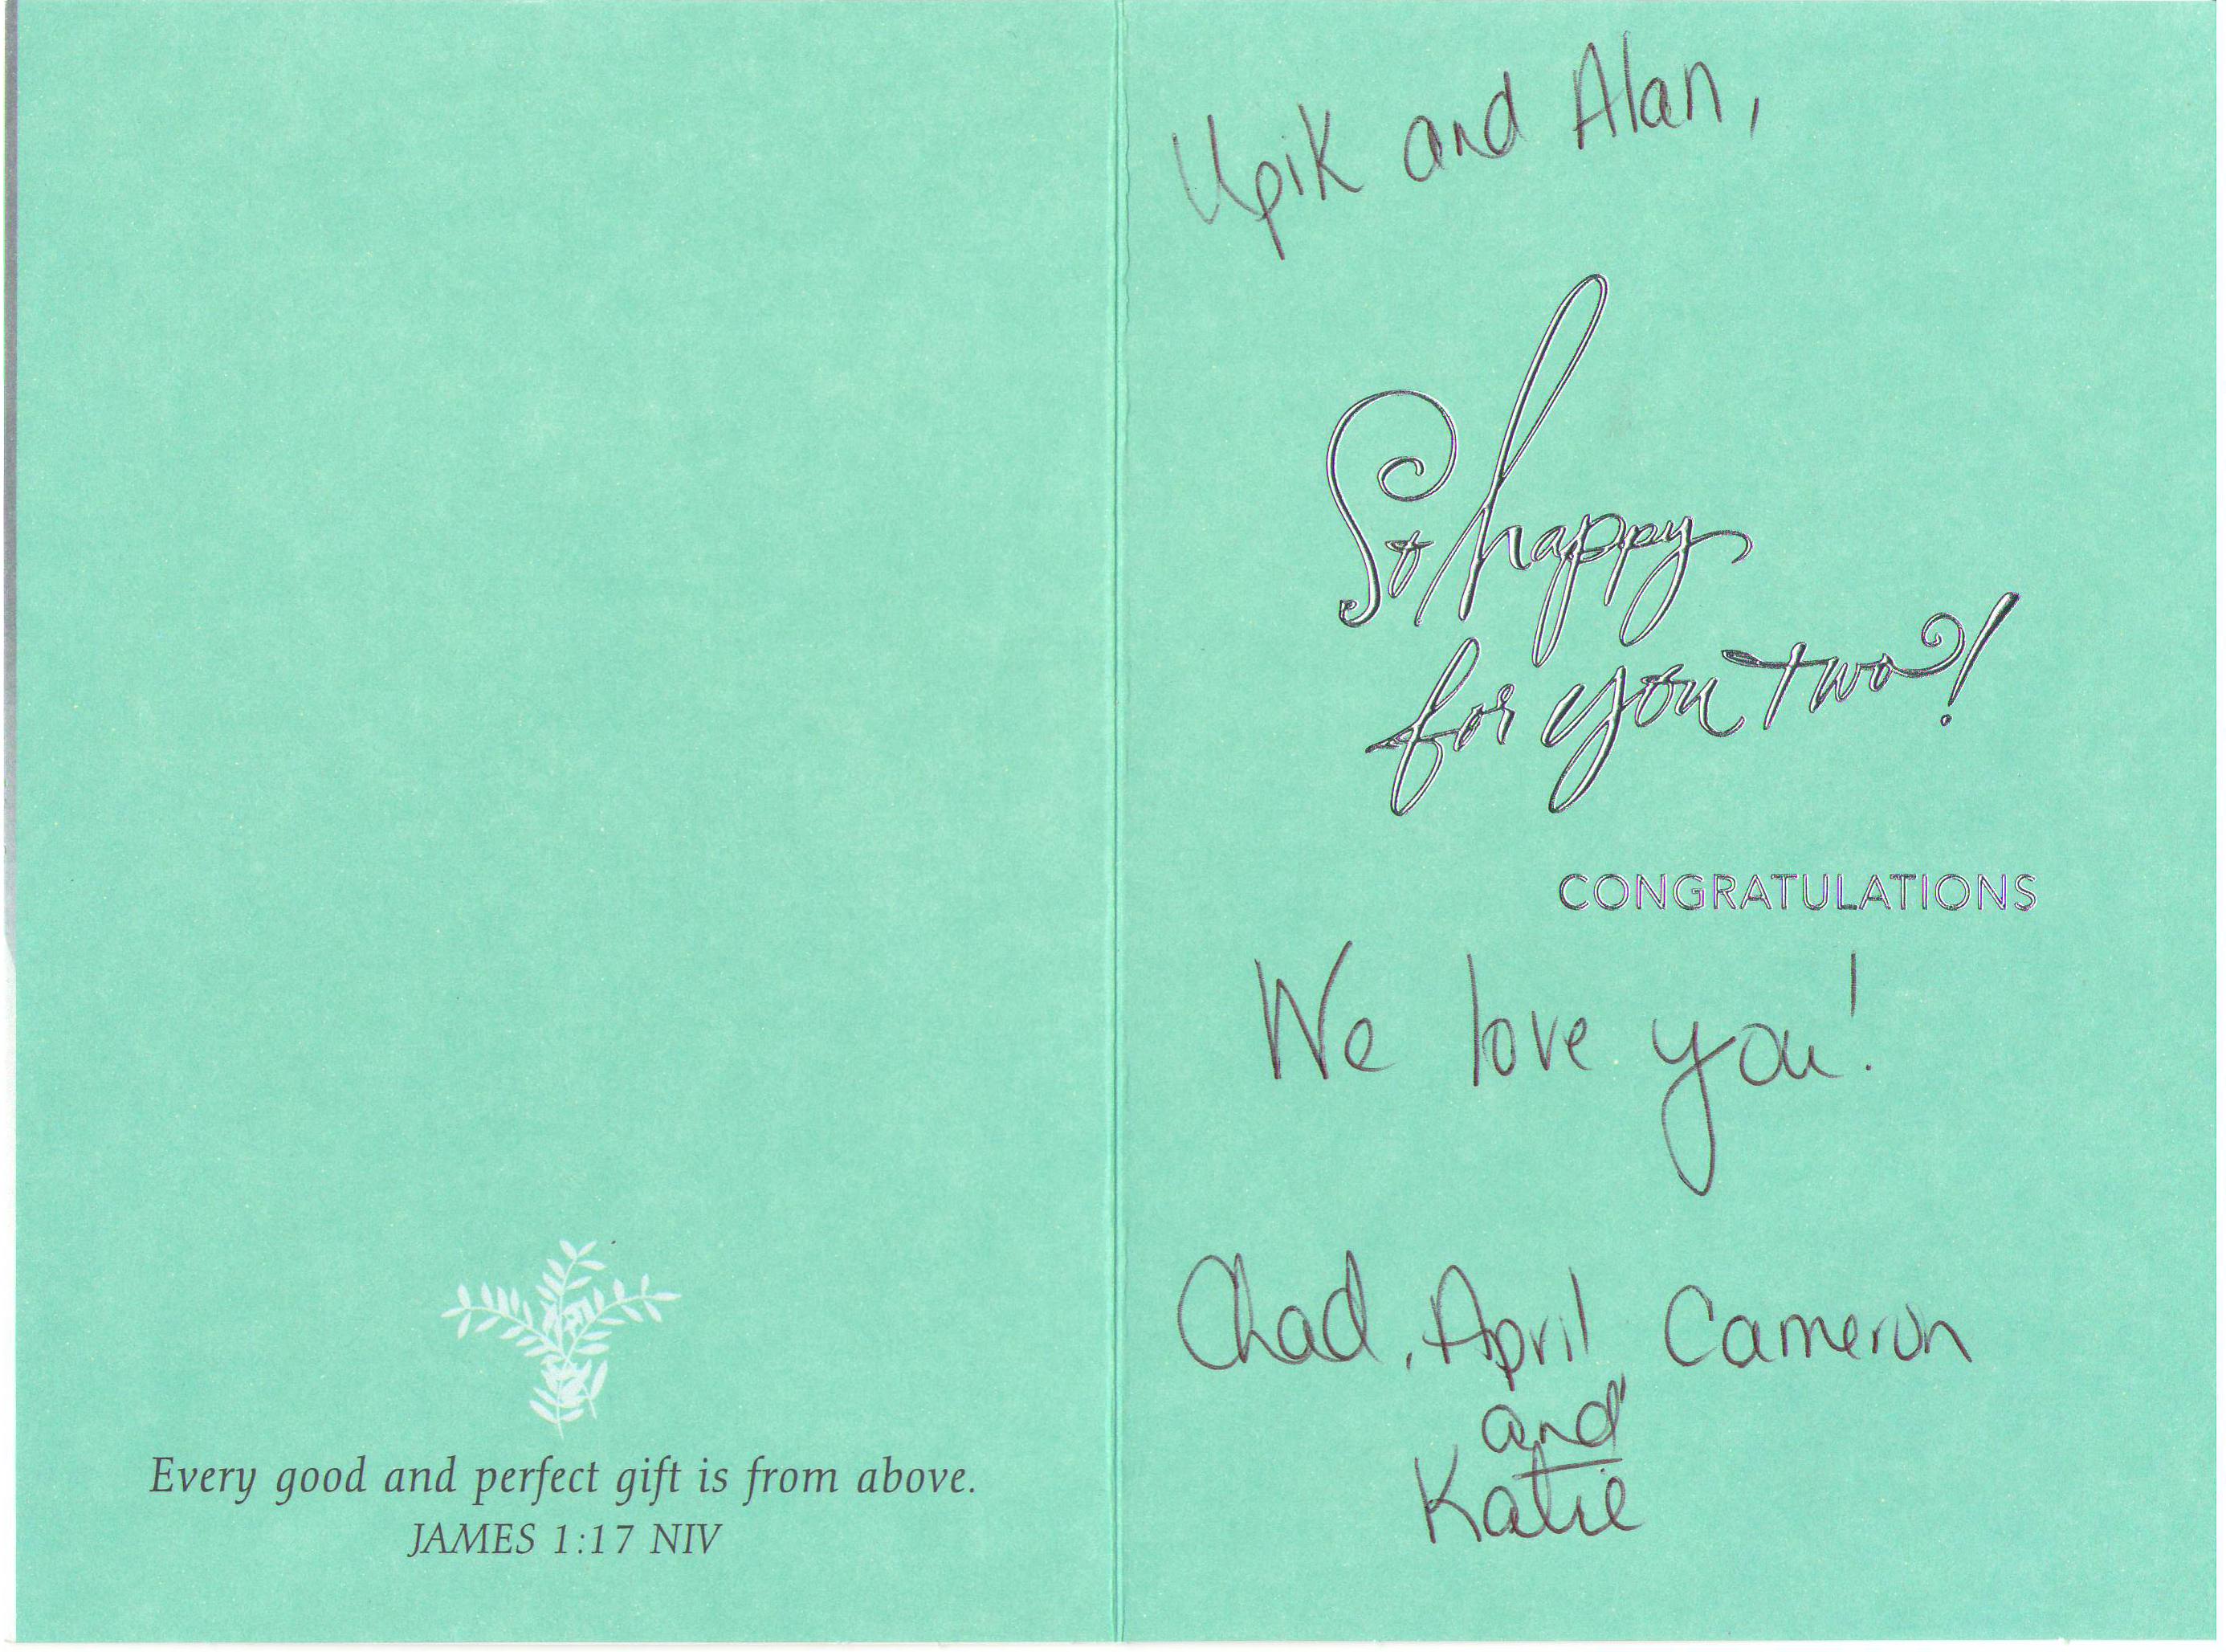 Every good and perfect gift is from above.
JAMES 1:17 NIV
Upik and Alan,
So happy
for you two!
CONGRATULATIONS
We love you!
Chad, April Cameron
and
Katie